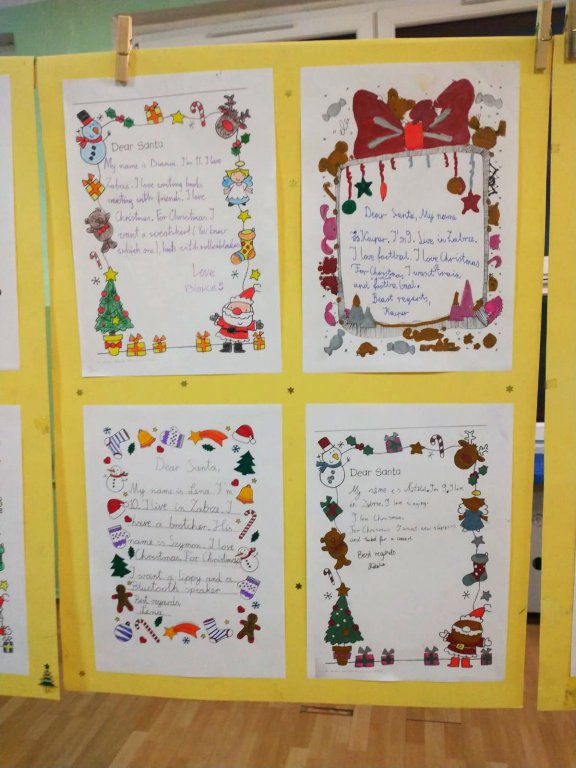 Dear Santa
My name is Bianca. I'm 11. I live
Zabrze. I love writing books,
meeting with friends. I love
Christmas. For Christmas I
want a sweatshirt (You know
which one), boots with rollerblades
Love
Bianca
Dear Santa, My name
is Kacper. I'm 9. Live in Zabrze.
I love football. I love Christmas.
For Christmas I want train,
and footba ball.
Beast regerts,
Kacper
Dear Santa,
My name is Lena. I'm
10. I live in Zabrze. I
have a brother. His
name is Szymon. I love
Christmas. For Christmas
I want a lippy and a
Bluetooth speaker
Best regards,
Lena
Dear Santa
My name is Natalia, I'm 9, I live
in Zabrze. I love singing.
I love Christmas.
For Christmas I want new slippers
and ticket for a concert
Best regards
Natalia